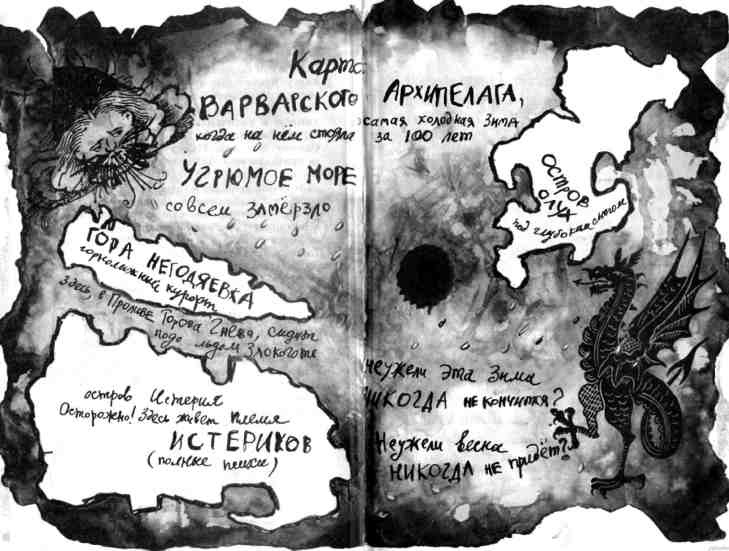 Карта
ВАРВАРСКОГО АРХИПЕЛАГА,
когда на нём стояла самая холодная зима
за 100 лет
УГРЮМОЕ МОРЕ
совсем замёрзло
ОСТРОВ
ОЛУХ
под глубоким снегом
ГОРА НЕГОДЯЕВКА
горнолыжный курорт
Здесь, в Проливе Торова Гнева, сидит
подо льдом Злокоготь
остров Истерия
Осторожно! Здесь живёт племя
ИСТЕРИКОВ
(полные психи)
Неужели эта зима
НИКОГДА не кончится?
Неужели весна
НИКОГДА не придёт?